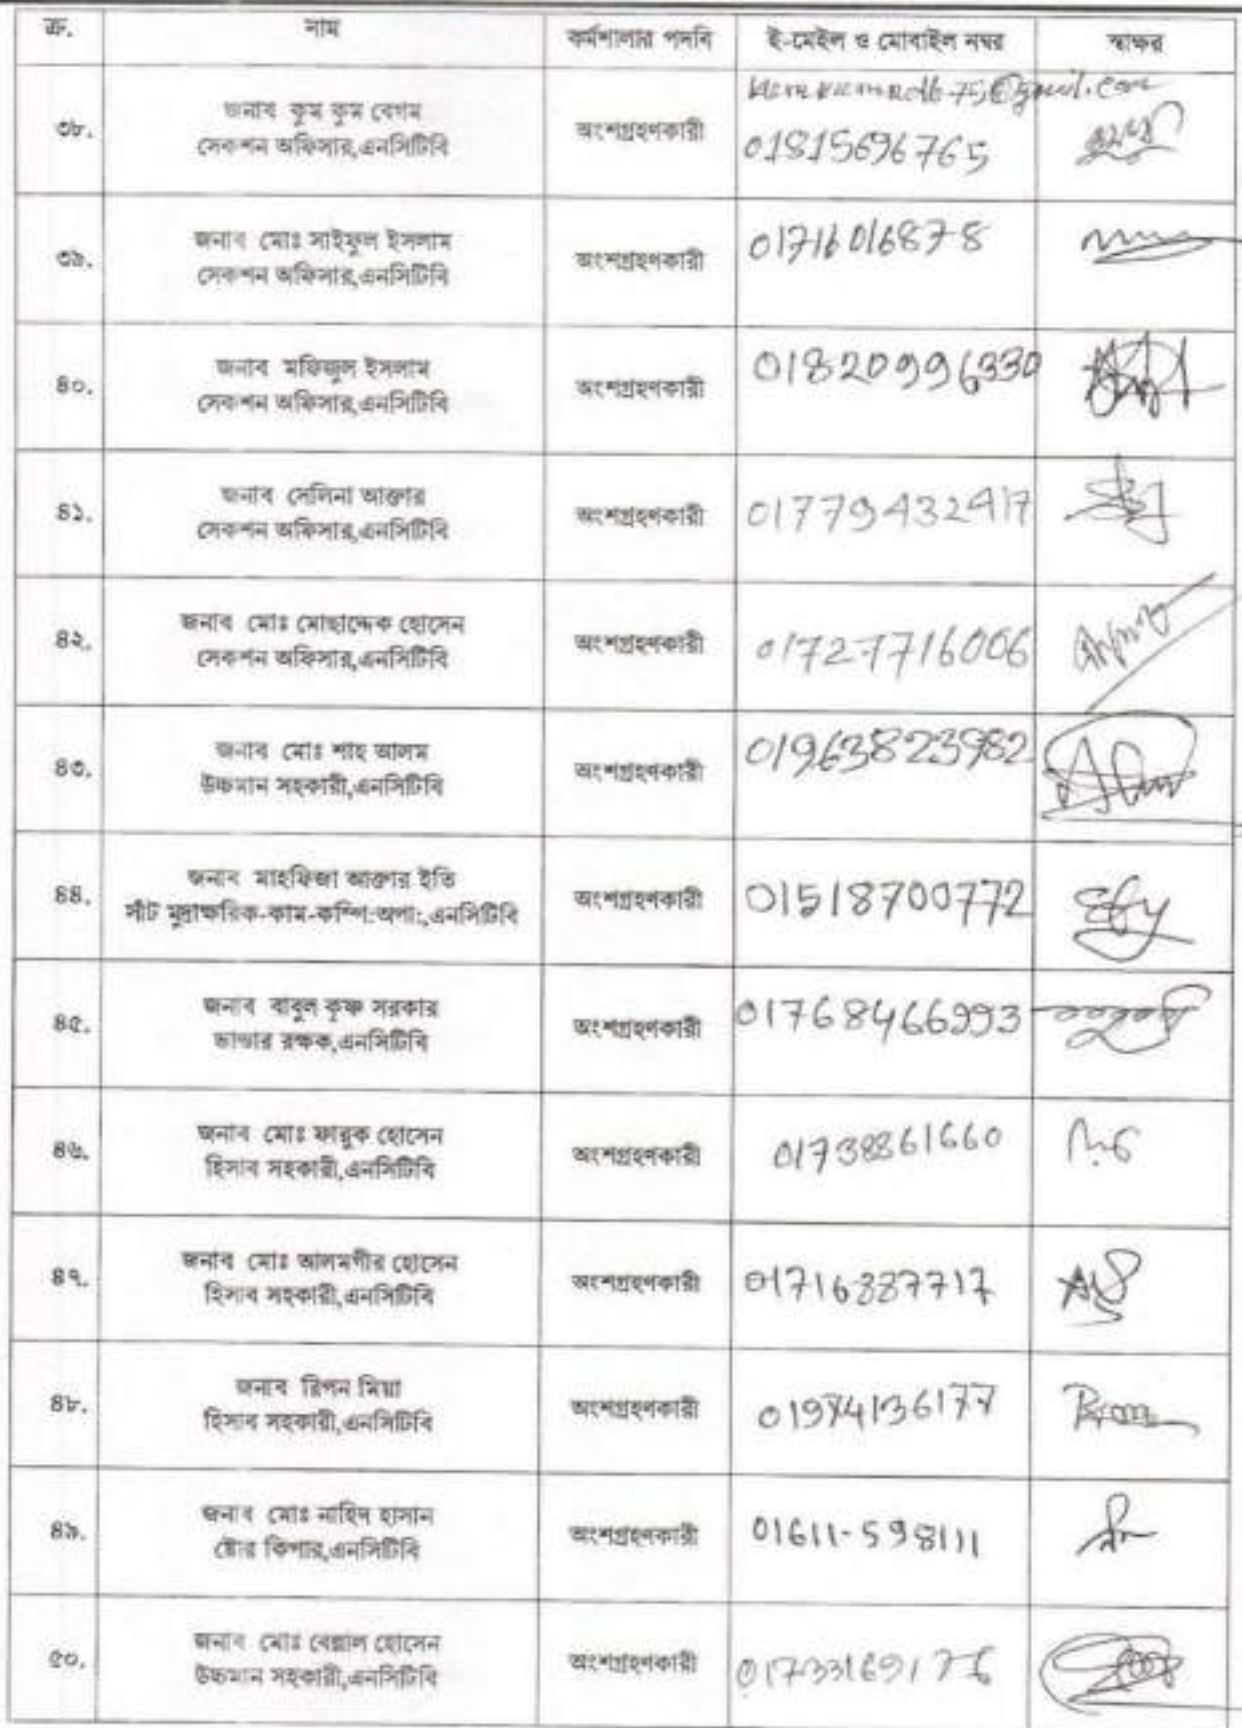 ক্র. নাম কর্মশালার পদবি ই-মেইল ও মোবাইল নম্বর স্বাক্ষর
৩৮. জনাব কুম কুম বেগম
সেকশন অফিসার,এনসিটিবি অংশগ্রহণকারী 01815696765
৩৯. জনাব মোঃ সাইফুল ইসলাম
সেকশন অফিসার,এনসিটিবি অংশগ্রহণকারী 01716016878
৪০. জনাব মফিজুল ইসলাম
সেকশন অফিসার,এনসিটিবি অংশগ্রহণকারী 01820996330
৪১. জনাব সেলিনা আক্তার
সেকশন অফিসার,এনসিটিবি অংশগ্রহণকারী 01779432417
৪২. জনাব মোঃ মোছাদ্দেক হোসেন
সেকশন অফিসার,এনসিটিবি অংশগ্রহণকারী 01727716006
৪৩. জনাব মোঃ শাহ আলম
উচ্চমান সহকারী,এনসিটিবি অংশগ্রহণকারী 01963823982
৪৪. জনাব মাহফিজা আক্তার ইতি
সাঁট মুদ্রাক্ষরিক-কাম-কম্পি:অপা:,এনসিটিবি অংশগ্রহণকারী 01518700772
৪৫. জনাব বাবুল কৃষ্ণ সরকার
ভান্ডার রক্ষক,এনসিটিবি অংশগ্রহণকারী 01768466993
৪৬. জনাব মোঃ ফারুক হোসেন
হিসাব সহকারী,এনসিটিবি অংশগ্রহণকারী 01738861660
৪৭. জনাব মোঃ আলমগীর হোসেন
হিসাব সহকারী,এনসিটিবি অংশগ্রহণকারী
৪৮. জনাব রিপন মিয়া
হিসাব সহকারী,এনসিটিবি অংশগ্রহণকারী 01974136177
৪৯. জনাব মোঃ নাহিদ হাসান
ষ্টোর কিপার,এনসিটিবি অংশগ্রহণকারী 01611-598111
৫০. জনাব মোঃ বেল্লাল হোসেন
উচ্চমান সহকারী,এনসিটিবি অংশগ্রহণকারী